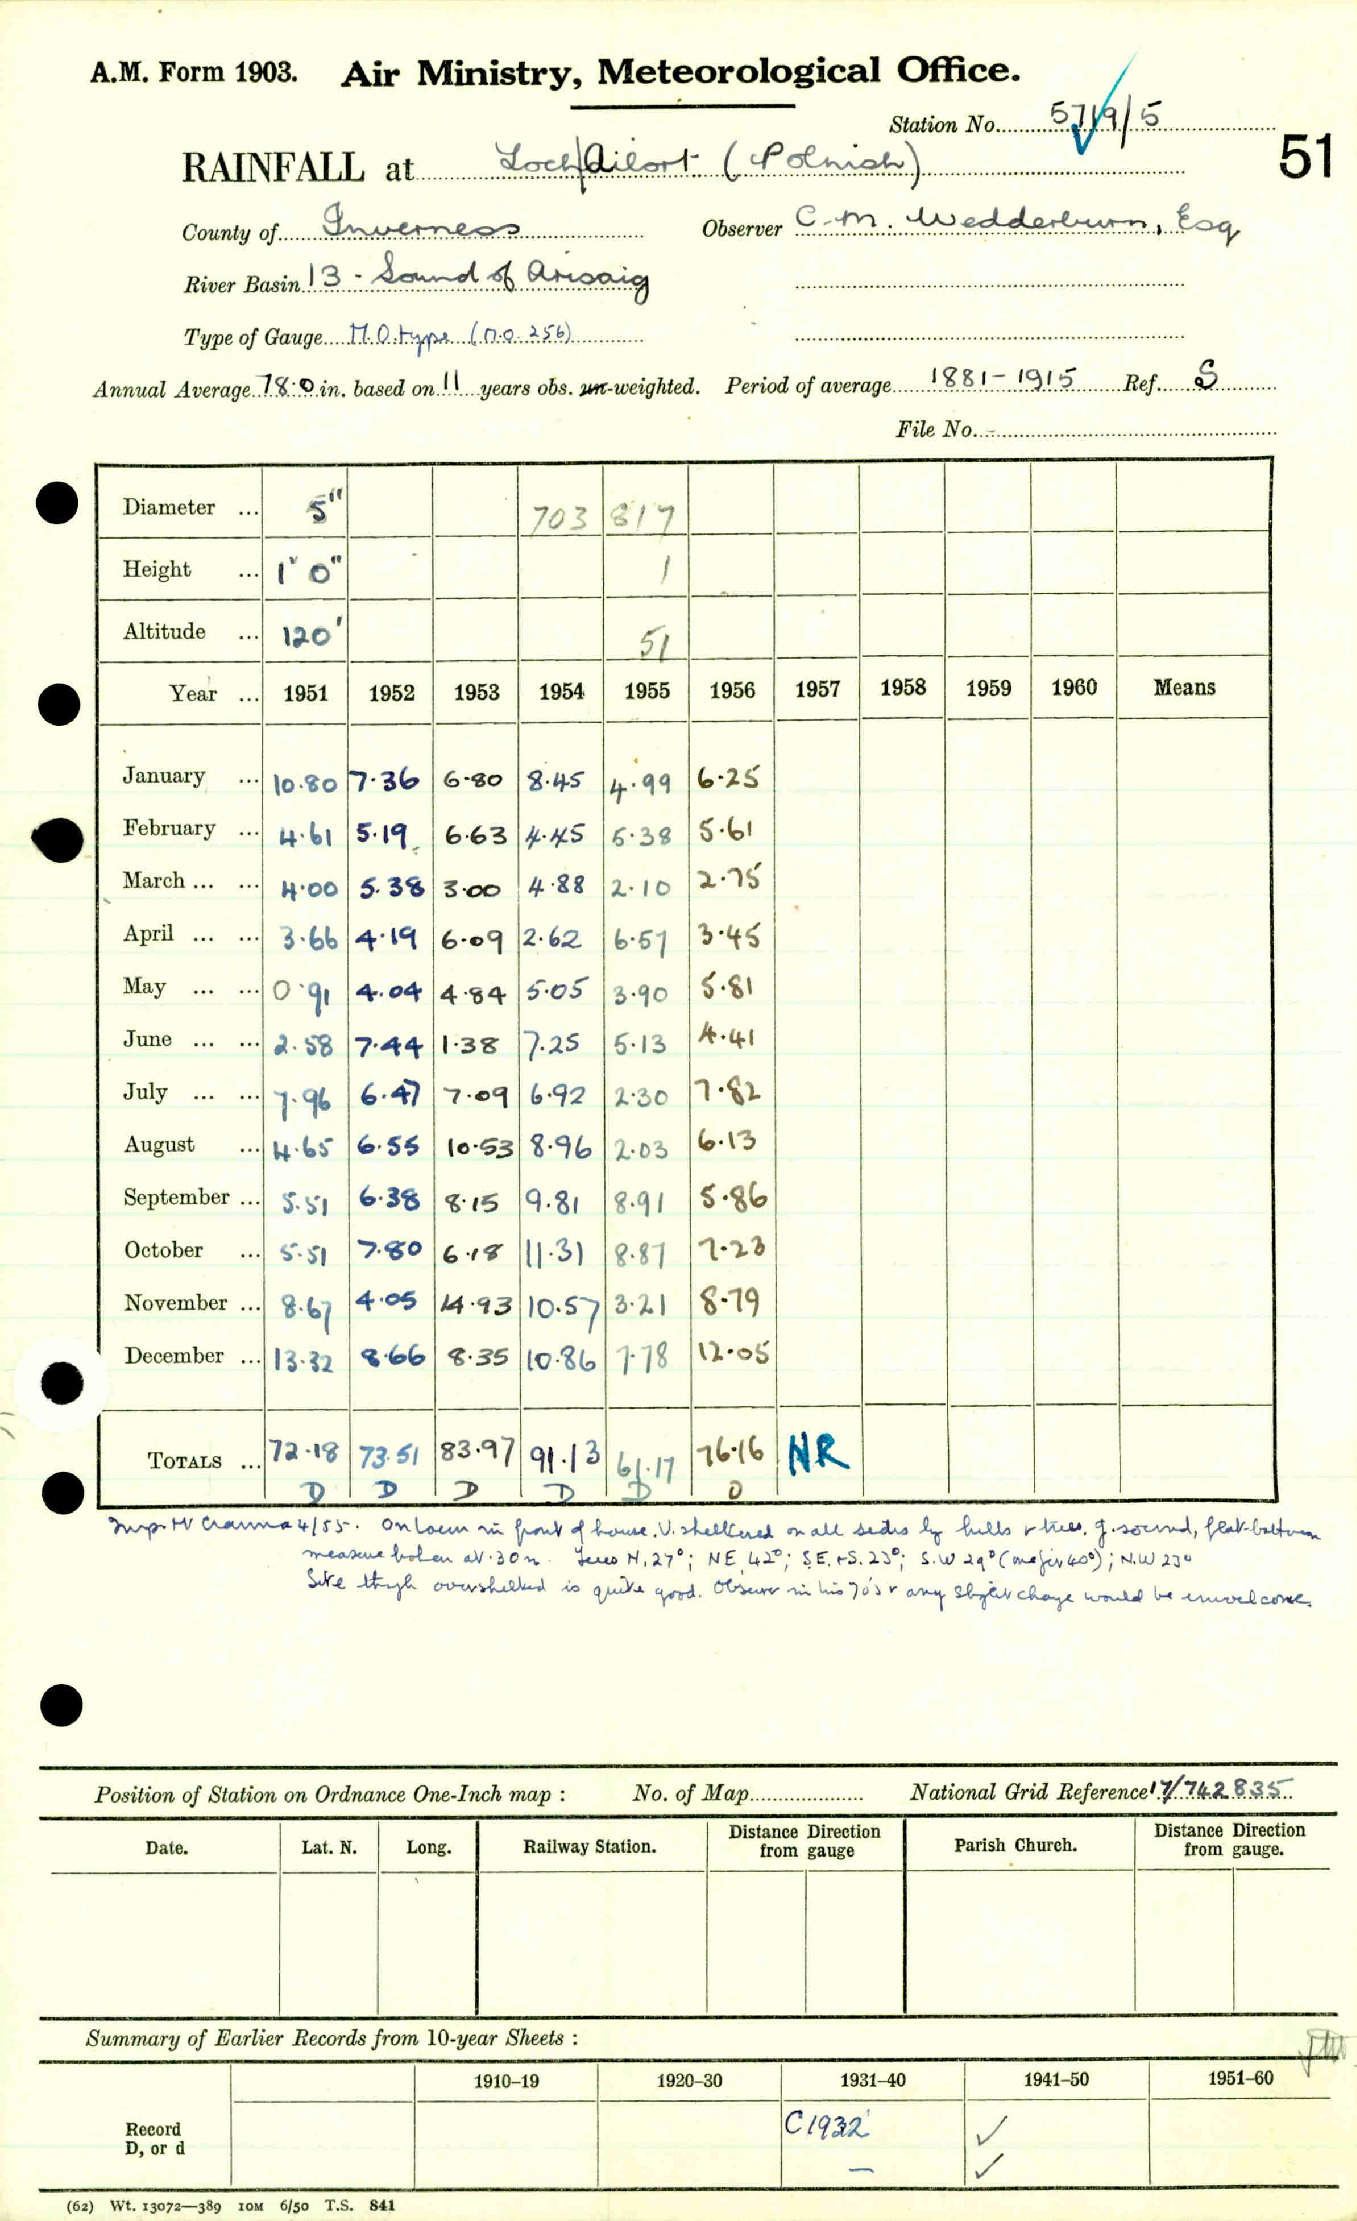 A.M. Form 1903. Air Ministry, Meteorological Office.
Station No. 5719/5
51
RAINFALL at Loch Ailort (Polnish)
County of Inverness Observer C. M. Wedderburn, Esq
River Basin 13 - Sound of Arisaig
Type of Gauge M.O. type (M.O. 256)
Annual Average 78.0 in. based on 11 years obs. un-weighted. Period of average 1881-1915 Ref. S
File No. -
Diameter ... 5" 703 817
Height ... 1' 0" 1
Altitude ... 120' 51
Year ... 1951 1952 1953 1954 1955 1956 1957 1958 1959 1960 Means
January ... 10.80 7.36 6.80 8.45 4.99 6.25
February ... 4.61 5.19 6.63 4.45 5.38 5.61
March ... ... 4.00 5.38 3.00 4.88 2.10 2.75
April ... ... 3.66 4.19 6.09 2.62 6.57 3.45
May ... ... 0.91 4.04 4.84 5.05 3.90 5.81
June ... ... 2.58 7.44 1.38 7.25 5.13 4.41
July ... ... 7.96 6.47 7.09 6.92 2.30 7.82
August ... 4.65 6.55 10.53 8.96 2.03 6.13
September ... 5.51 6.38 8.15 9.81 8.91 5.86
October ... 5.51 7.80 6.18 11.31 8.87 7.23
November ... 8.67 4.05 14.93 10.57 3.21 8.79
December ... 13.32 8.66 8.35 10.86 7.78 12.05
TOTALS ... 72.18 73.51 83.97 91.13 61.17 76.16 NR
D D D D D D
4/55. On lawn in front of house. V. sheltered on all sides by hills & trees. G. sound, flat-bottom
measure broken at .30 in. N. 27°; NE 42°; SE. & S. 23°; S.W 29° (40°); N.W 23°
Site though oversheltered is quite good. Observer in his 70's & any slight change would be unwelcome.
Position of Station on Ordnance One-Inch map : No. of Map National Grid Reference 17/742835
Date. Lat. N. Long. Railway Station. Distance from Direction gauge Parish Church. Distance from Direction gauge.
Summary of Earlier Records from 10-year Sheets :
1910-19 1920-30 1931-40 1941-50 1951-60
Record C1932 ✓
D, or d — ✓
(62) Wt. 13072—389 10M 6/50 T.S. 841